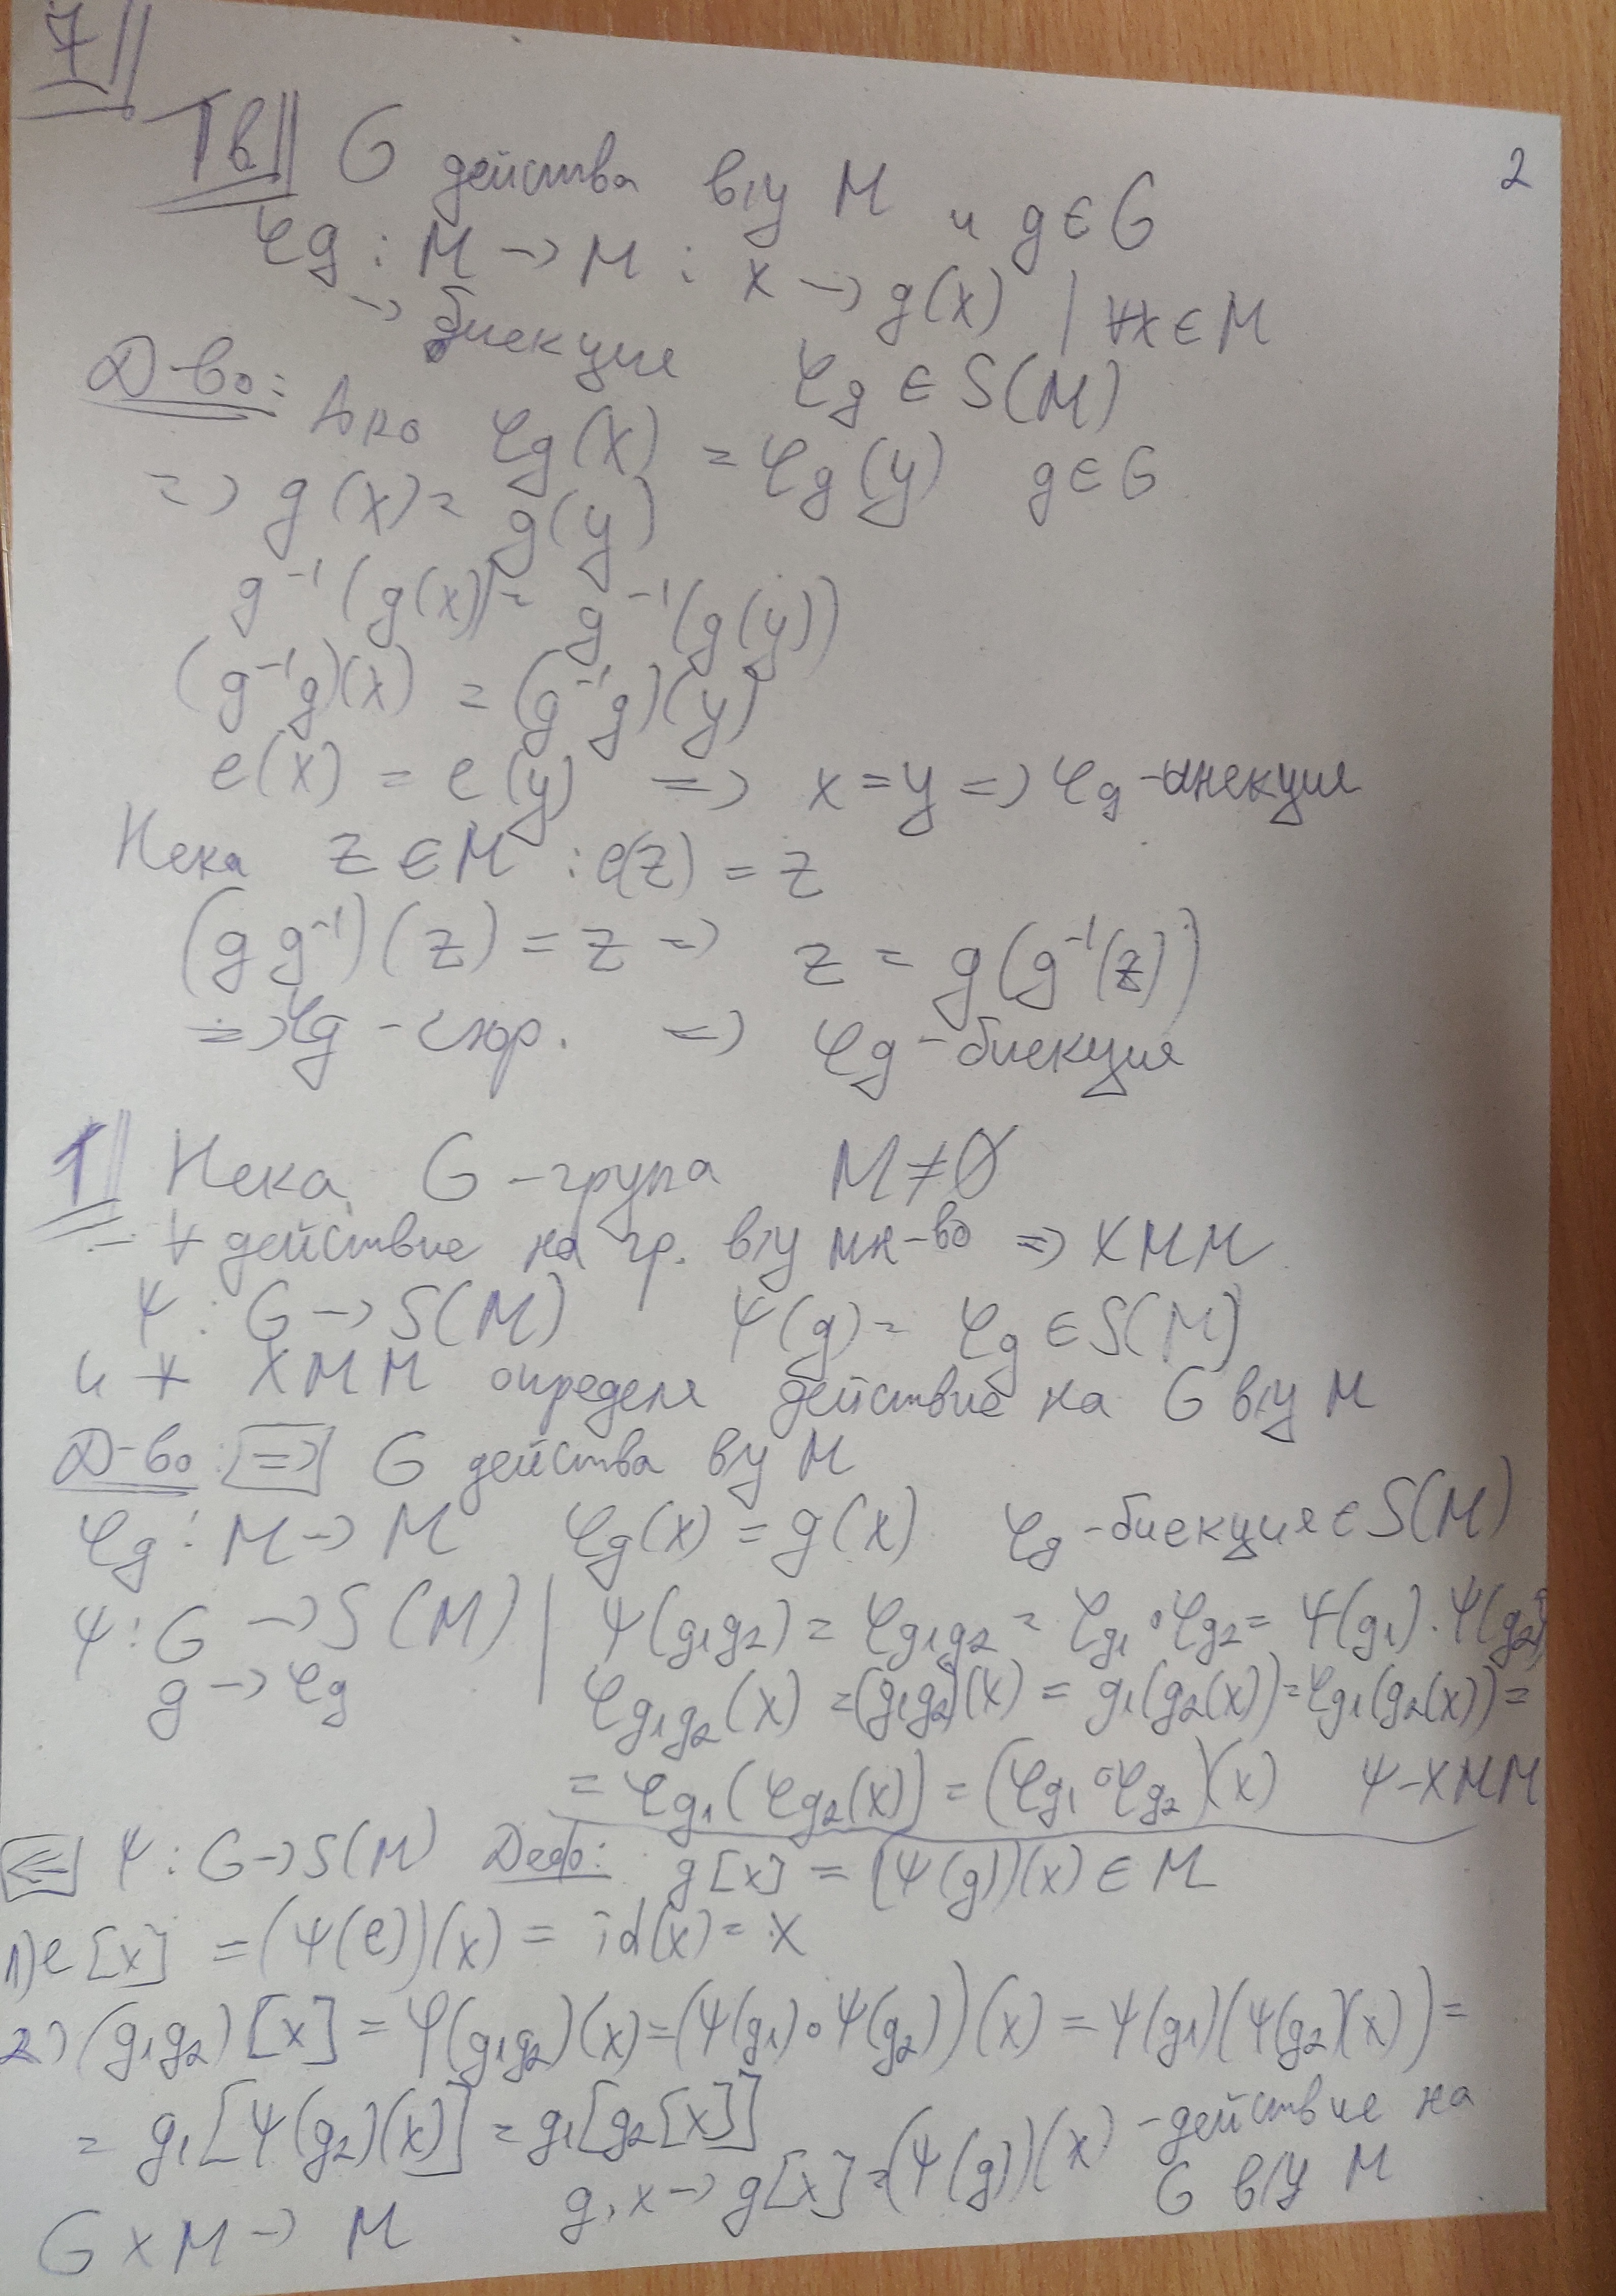 7
2
Тв G действа в/у M и g ∈ G
φg : M → M : x → g(x) | ∀x ∈ M
→ биекция φg ∈ S(M)
Д-во: Ако φg(x) = φg(y) g ∈ G
=> g(x) = g(y)
g⁻¹(g(x)) = g⁻¹(g(y))
(g⁻¹g)(x) = (g⁻¹g)(y)
e(x) = e(y) => x = y => φg - инекция
Нека z ∈ M : e(z) = z
(g g⁻¹)(z) = z => z = g(g⁻¹(z))
=> φg - сюр. => φg - биекция
1 Нека G - група M ≠ ∅
- ∀ действие на гр. в/у мн-во => ХММ
Ψ : G → S(M) Ψ(g) = φg ∈ S(M)
и ∀ ХММ определя действие на G в/у M
Д-во: => G действа в/у M
φg : M → M φg(x) = g(x) φg - биекция ∈ S(M)
Ψ : G → S(M) | Ψ(g₁g₂) = φg₁g₂ = φg₁ ∘ φg₂ = Ψ(g₁) . Ψ(g₂)
g → φg φg₁g₂(x) = (g₁g₂)(x) = g₁(g₂(x)) = φg₁(g₂(x)) =
= φg₁(φg₂(x)) = (φg₁ ∘ φg₂)(x) Ψ - ХММ
<= Ψ : G → S(M) Деф: g[x] = (Ψ(g))(x) ∈ M
1) e[x] = (Ψ(e))(x) = id(x) = x
2) (g₁g₂)[x] = Ψ(g₁g₂)(x) = (Ψ(g₁) ∘ Ψ(g₂))(x) = Ψ(g₁)(Ψ(g₂)(x)) =
= g₁[Ψ(g₂)(x)] = g₁[g₂[x]]
G x M → M g, x → g[x] = (Ψ(g))(x) - действие на
G в/у M